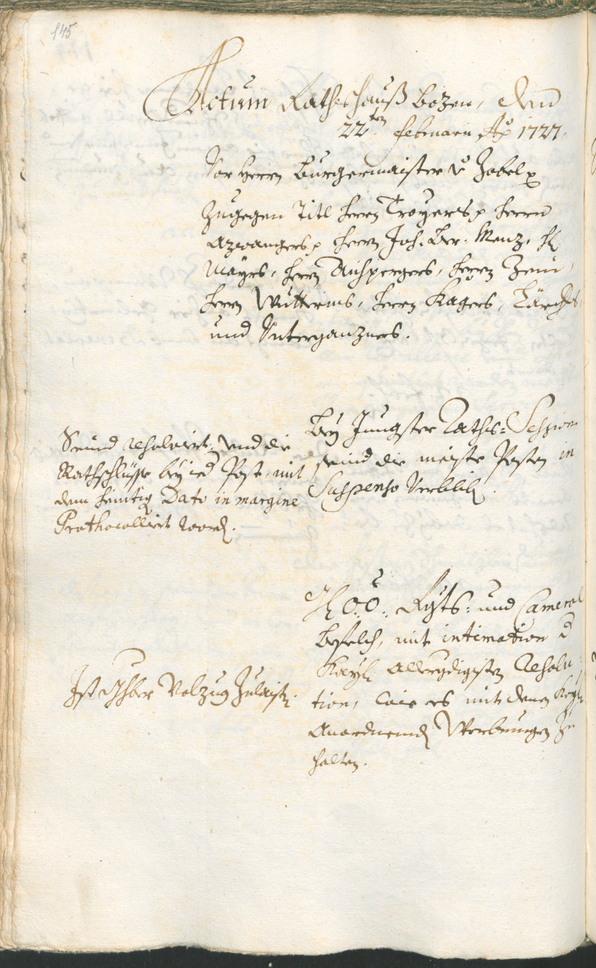 145
Actum Rathshauß bozen, den
22ten Februarii Ao 1727.
Vor Herrn Burgermaister v Zobel p
Zugegen Titl Herrn Troyers p Herrn
Azwangers p Herrn Joh: Menz, H
Mayrs, Herrn Aichpergers, Herrn
Herrn Wütterins, Herrn Kagers,
und Unterganzners.
Bey Jungster Raths: Session
seind die maiste Posten in
Suspenso verblib.
Seind resolvirt, und die
Rathschlüsse bey ied Post mit
dem heuntig Dato in margine
Prothocollirt word.
O: O: Rgts: und Cameral
befelch, mit intimation d
Kayl: allergdigsten Resolu
tion, wie es mit denen
Werbungen zu
halten.
Ist Volzug Zulaist.